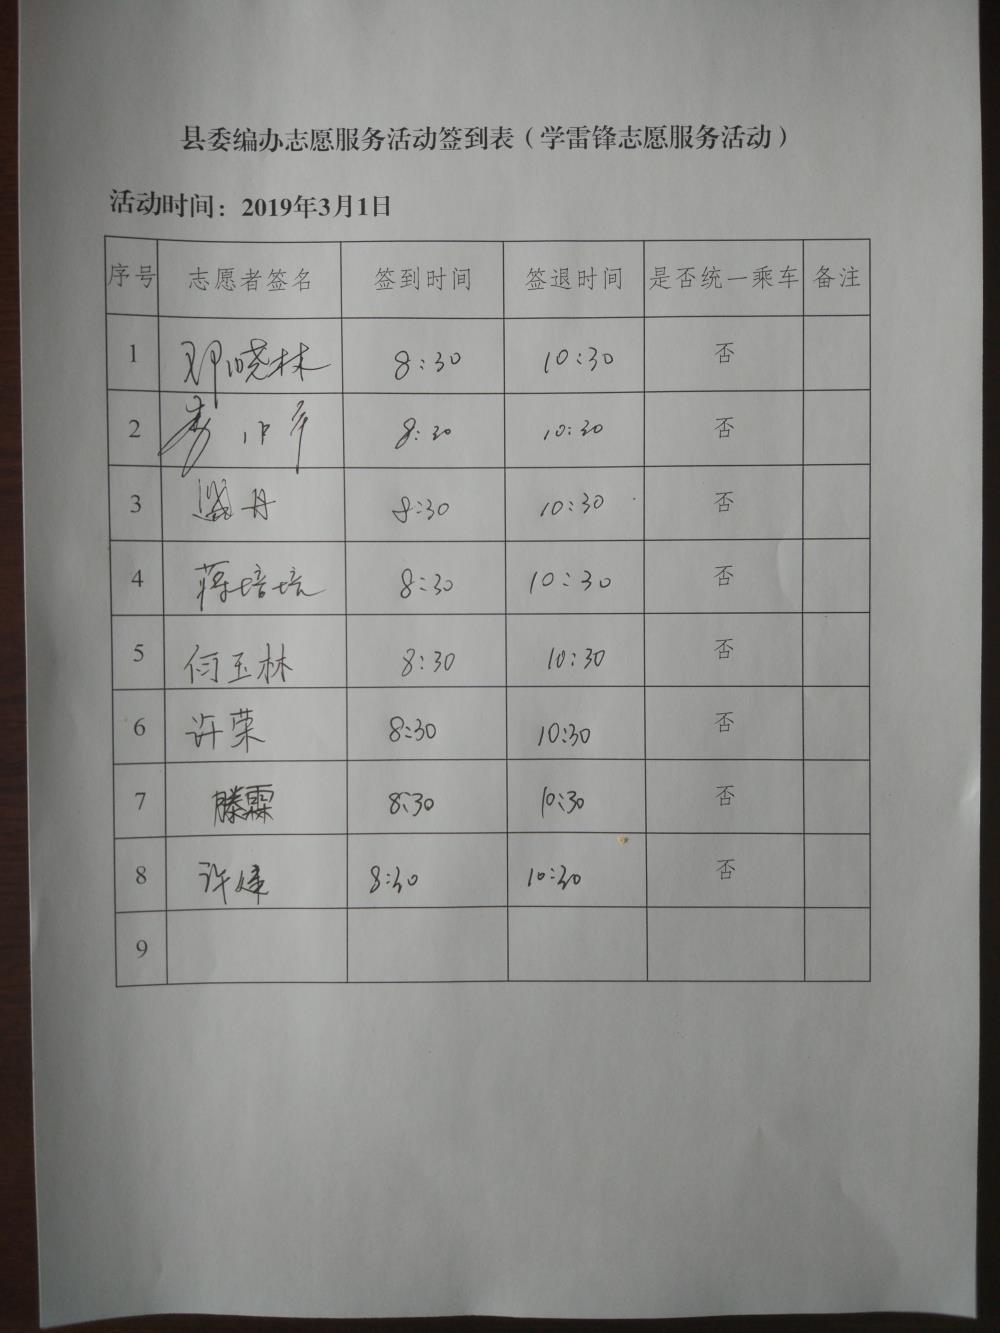 县委编办志愿服务活动签到表（学雷锋志愿服务活动）
活动时间：2019年3月1日
序号 志愿者签名 签到时间 签退时间 是否统一乘车 备注
1 邓晓林 8:30 10:30 否
2 8:30 10:30 否
3 丹 8:30 10:30 否
4 蒋培培 8:30 10:30 否
5 何玉林 8:30 10:30 否
6 许荣 8:30 10:30 否
7 滕霖 8:30 10:30 否
8 许 8:30 10:30 否
9